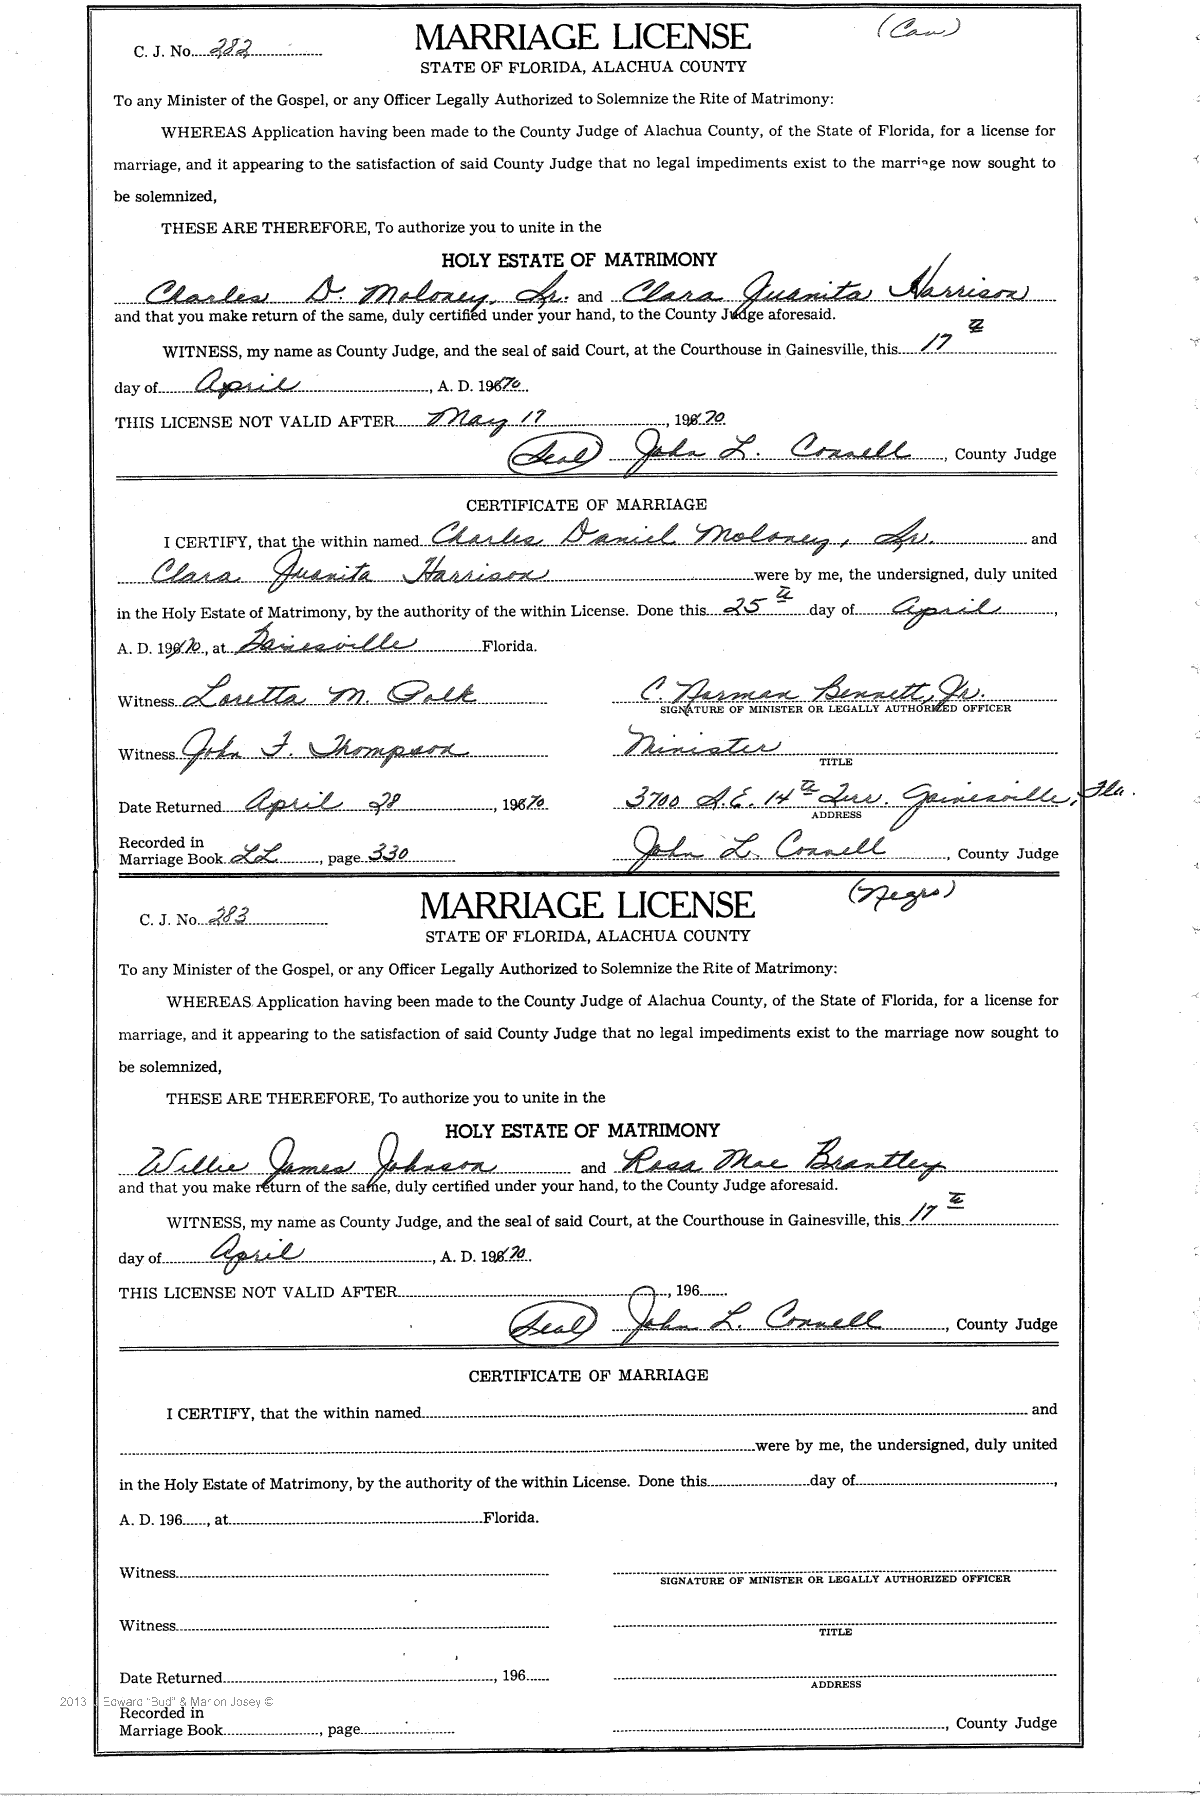 (Cau)
C. J. No. 282
MARRIAGE LICENSE
STATE OF FLORIDA, ALACHUA COUNTY
To any Minister of the Gospel, or any Officer Legally Authorized to Solemnize the Rite of Matrimony:
WHEREAS Application having been made to the County Judge of Alachua County, of the State of Florida, for a license for
marriage, and it appearing to the satisfaction of said County Judge that no legal impediments exist to the marriage now sought to
be solemnized,
THESE ARE THEREFORE, To authorize you to unite in the
HOLY ESTATE OF MATRIMONY
Charles D. Moloney, Sr. and Clara Juanita Harrison
and that you make return of the same, duly certified under your hand, to the County Judge aforesaid.
WITNESS, my name as County Judge, and the seal of said Court, at the Courthouse in Gainesville, this 17th
day of April, A. D. 19670.
THIS LICENSE NOT VALID AFTER May 17, 19670
(Seal) John L. Connell, County Judge
CERTIFICATE OF MARRIAGE
I CERTIFY, that the within named Charles Daniel Moloney, Sr. and
Clara Juanita Harrison were by me, the undersigned, duly united
in the Holy Estate of Matrimony, by the authority of the within License. Done this 25th day of April,
A. D. 19670, at Gainesville Florida.
Witness Loretta M. Polk C. Norman Bennett, Jr.
SIGNATURE OF MINISTER OR LEGALLY AUTHORIZED OFFICER
Witness John F. Thompson Minister
TITLE
Date Returned April 28, 19670 3700 S.E. 14th Terr. Gainesville, Fla.
ADDRESS
Recorded in
Marriage Book LL, page 330 John L. Connell, County Judge
(Negro)
C. J. No. 283
MARRIAGE LICENSE
STATE OF FLORIDA, ALACHUA COUNTY
To any Minister of the Gospel, or any Officer Legally Authorized to Solemnize the Rite of Matrimony:
WHEREAS Application having been made to the County Judge of Alachua County, of the State of Florida, for a license for
marriage, and it appearing to the satisfaction of said County Judge that no legal impediments exist to the marriage now sought to
be solemnized,
THESE ARE THEREFORE, To authorize you to unite in the
HOLY ESTATE OF MATRIMONY
Willie James Johnson and Rosa Mae Brantley
and that you make return of the same, duly certified under your hand, to the County Judge aforesaid.
WITNESS, my name as County Judge, and the seal of said Court, at the Courthouse in Gainesville, this 17th
day of April, A. D. 19670.
THIS LICENSE NOT VALID AFTER, 196
(Seal) John L. Connell, County Judge
CERTIFICATE OF MARRIAGE
I CERTIFY, that the within named and
were by me, the undersigned, duly united
in the Holy Estate of Matrimony, by the authority of the within License. Done this day of,
A. D. 196, at Florida.
Witness
SIGNATURE OF MINISTER OR LEGALLY AUTHORIZED OFFICER
Witness
TITLE
Date Returned, 196
ADDRESS
2013 J Edward "Bud" & Marion Josey ©
Recorded in
Marriage Book, page, County Judge